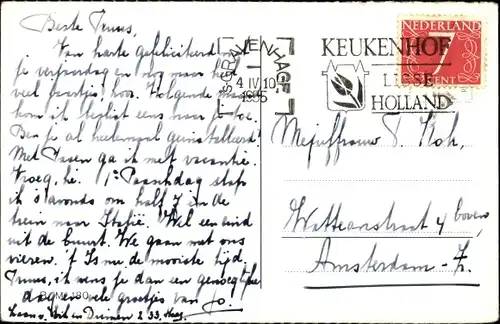 Beste Truus,
Van harte gefeliciteerd met
je verjaardag en nog maar heel
veel jaartjes hoor. Volgende maand
kom ik beslist eens naar je toe.
Ben je al heelemaal geinstalleerd?
Met Pasen ga ik met vacantie.
Vroeg, hè. 1e Paaschdag stap
ik 's avonds om half 7 in de
trein naar Italië. Wel een eind
uit de buurt. We gaan met ons
vieren. 't Is nu de mooiste tijd.
Truus, ik wens je dan een genoegelijke
dag en vele groetjes van Jo.
Laan v. Meerdervoort
'S GRAVENHAGE
4 IV 10
1955
KEUKENHOF
LISSE
HOLLAND
NEDERLAND
7
CENT
Mejuffrouw T. Kok,
Watteaustraat 4 boven
Amsterdam-Z.